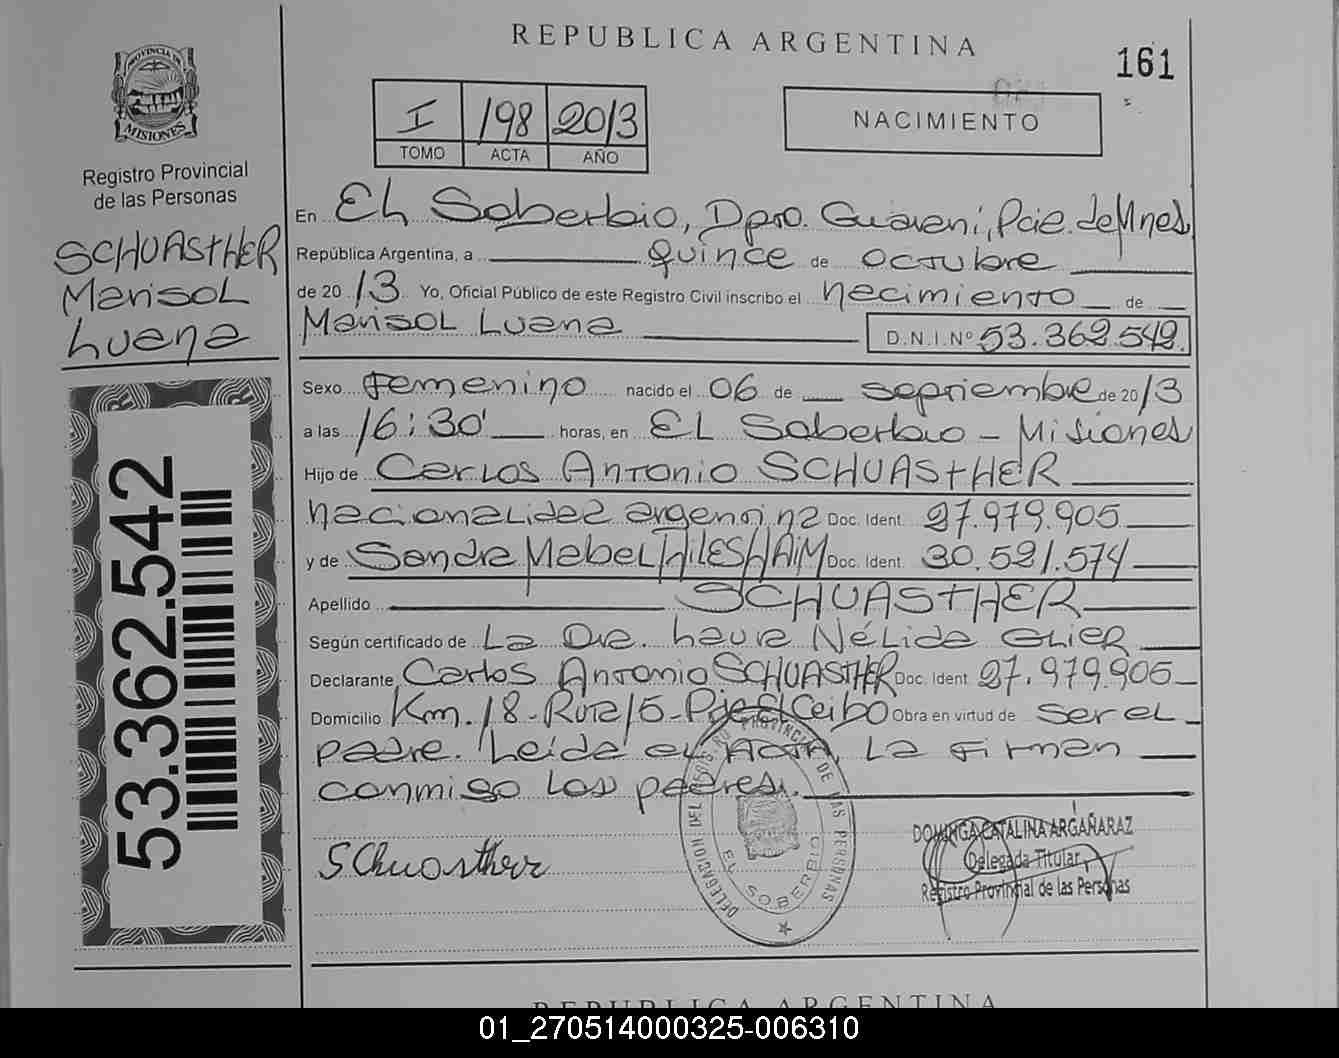 REPUBLICA ARGENTINA
161
PROVINCIA DE
MISIONES
Registro Provincial
de las Personas
SCHUASTHER
Marisol
Luana
I 198 2013
TOMO ACTA AÑO
NACIMIENTO
En El Soberbio, Dpto. Guarani, Pcia. de Mnes.
República Argentina, a quince de octubre
de 2013 Yo, Oficial Público de este Registro Civil inscribo el nacimiento de
Marisol Luana D.N.I.Nº 53.362.542.
Sexo femenino nacido el 06 de septiembre de 2013
a las 16:30' horas, en El Soberbio - Misiones
Hijo de Carlos Antonio SCHUASTHER
nacionalidad argentina Doc. Ident. 27.979.905
y de Sandra Mabel HILESHAIM Doc. Ident. 30.521.574
Apellido SCHUASTHER
Según certificado de La Dra. Laura Nélida GLIER
Declarante Carlos Antonio SCHUASTHER Doc. Ident. 27.979.905
Domicilio Km. 18 - Ruta 15 - Pje El Ceibo Obra en virtud de ser el
padre. Leída el Acta, la firman
conmigo los padres.
53.362.542
Schuasther
DELEGACION DEL REGISTRO PROVINCIAL DE LAS PERSONAS
EL SOBERBIO
DOMINGA CATALINA ARGAÑARAZ
Delegada Titular
Registro Provincial de las Personas
REPUBLICA ARGENTINA
01_270514000325-006310